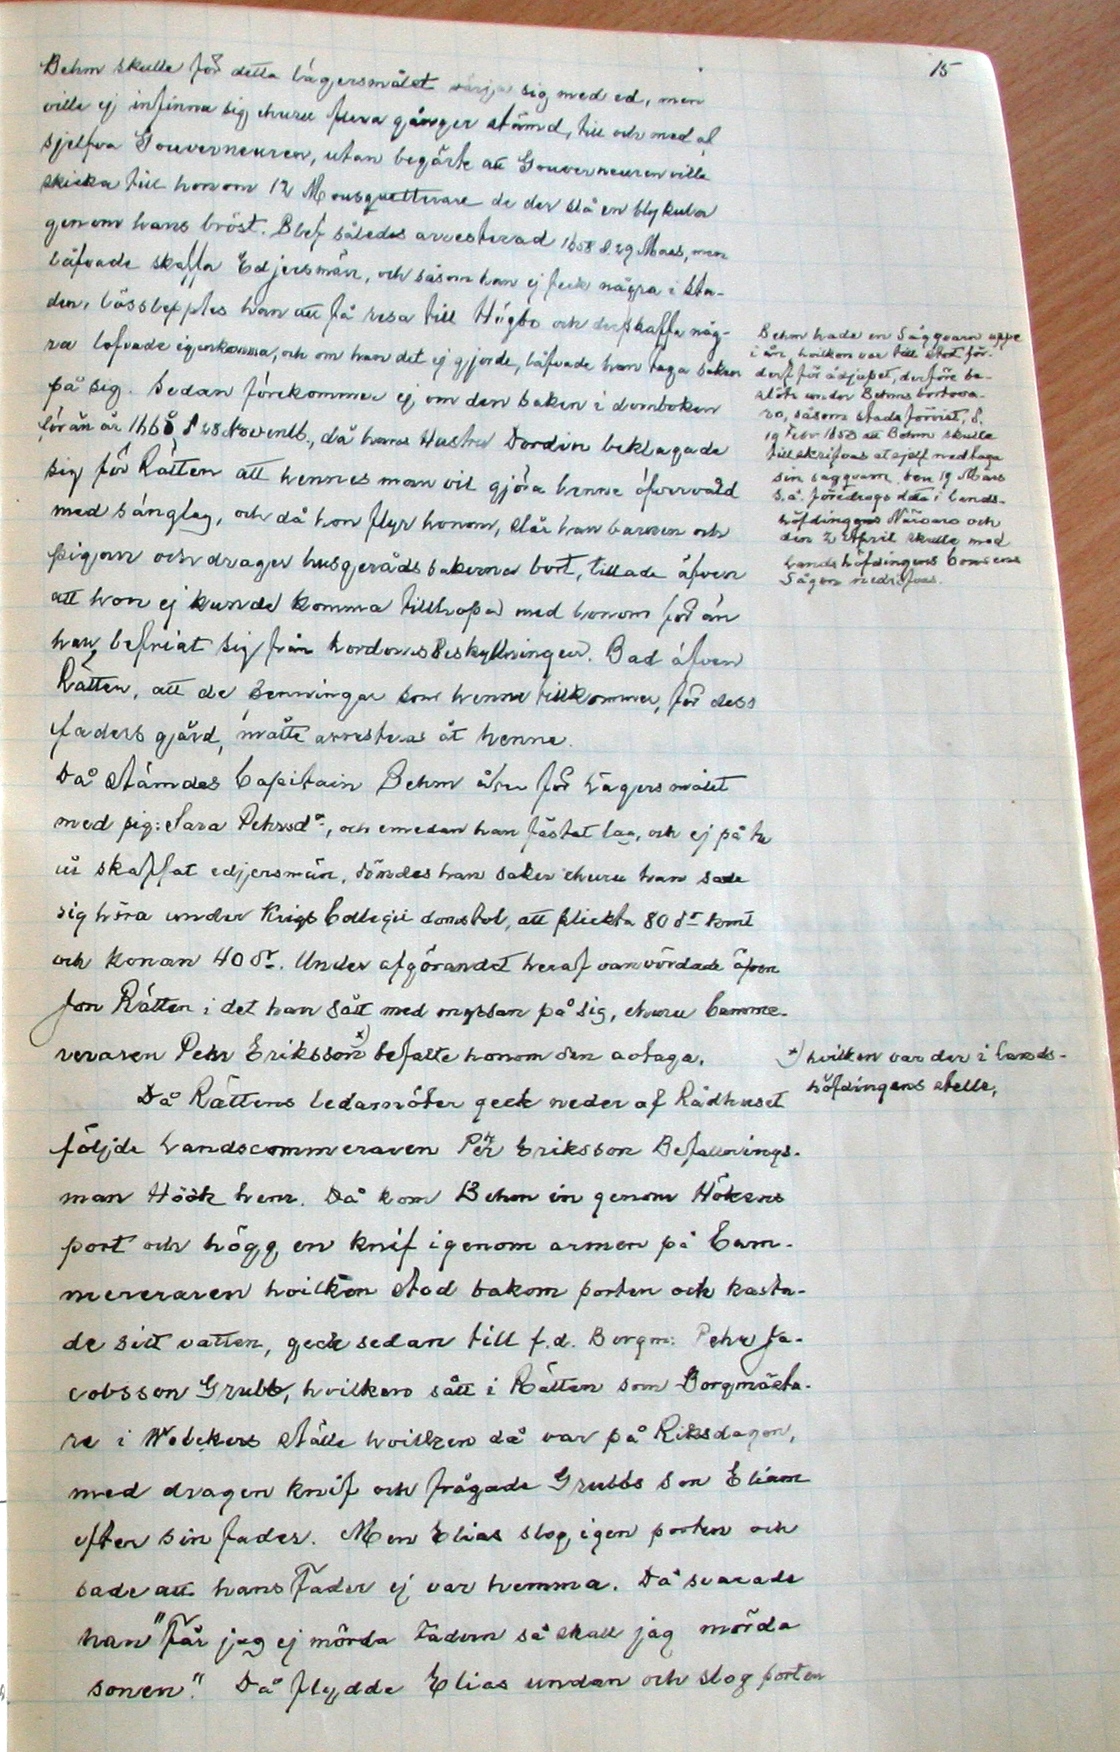 15
Behm skulle för detta lägersmålet värja sig med ed, men
ville ej infinna sig ehuru flera gånger stämd, till och med af
sjelfva Gouverneuren, utan begärte att Gouverneuren ville
skicka till honom 12 Mousquetterare de der slå en blykula
genom hans bröst. Blef således arresterad 1658 d. 29 Mars, men
låfvade skaffa Edjersmän, och såsom han ej feck några i sta-
den, låssleptes han att få resa till Högbo och der skaffa någ-
ra lofvade igenkomma, och om han det ej gjorde, låfvade han taga saken
på sig. Sedan förekommer ej om den saken i domboken
förän år 1665 d 28 Novemb., då hans Hustru Dordin beklagade
sig för Rätten att hennes man vil gjöra henne öfvervåld
med sänglag, och då hon flyr honom, slår han barnen och
pigan och drager husgerådssakerna bort, tillade äfven
att hon ej kunde komma tillhopa med honom för än
han befriat sig från hordoms Beskyllningen. Bad äfven
Rätten, att de penningar som henne tillkommer, för dess
faders gjärd, måtte arresteras åt henne.
Då stämdes Capitain Behm åter för Lägersmålet
med pig: Sara Pehrsdr, och emedan han fästat lag, och ej på
år skaffat edjersmän, dömdes han saker ehuru han sade
sig höra under Krigs Collegii domstol, att plickta 80 dr kmt
och konan 40 dr. Under afgörandet heraf vanvördade äfven
han Rätten i det han sått med myssan på sig, ehuru Camme-
reraren Pehr Eriksson x) befalte honom den aftaga.
Då Rättens ledamöter geck neder af Rådhuset
följde Landscommeraren Per Eriksson Befallnings-
man Höök hem. Då kom Behm in genom Hökens
port och högg en knif igenom armen på Cam-
mereraren hvilken stod bakom porten och kasta-
de sitt vatten, geck sedan till f.d. Borgm: Pehr Ja-
cobsson Grubb, hvilken sått i Rätten som Borgmästa-
re i Webekers ställe hvilken då var på Riksdagen,
med dragen knif och frågade Grubbs son Eliam
efter sin fader. Men Elias slog igen porten och
sade att hans Fader ej var hemma. Då svarade
han "Får jag ej mörda Fadern så skall jag mörda
sonen". Då flydde Elias undan och slog porten
Behm hade en Sågqvarn uppe
i ån, hvilken var till stort för-
derf för ådjupet, derföre be-
slöts under Behms bortova-
ro, såsom stads förvist, d.
19 Febr 1658 att Behm skulle
tillskrifvas at sjelf nedtaga
sin sagqvarn, den 19 Mars
s.å. föredrogs detta i Lands-
höfdingens Närvaro och
den 2 April skulle med
Landshöfdingens Consens
Sågen nedrifvas.
x) hvilken var der i Lands-
höfdingens stelle,